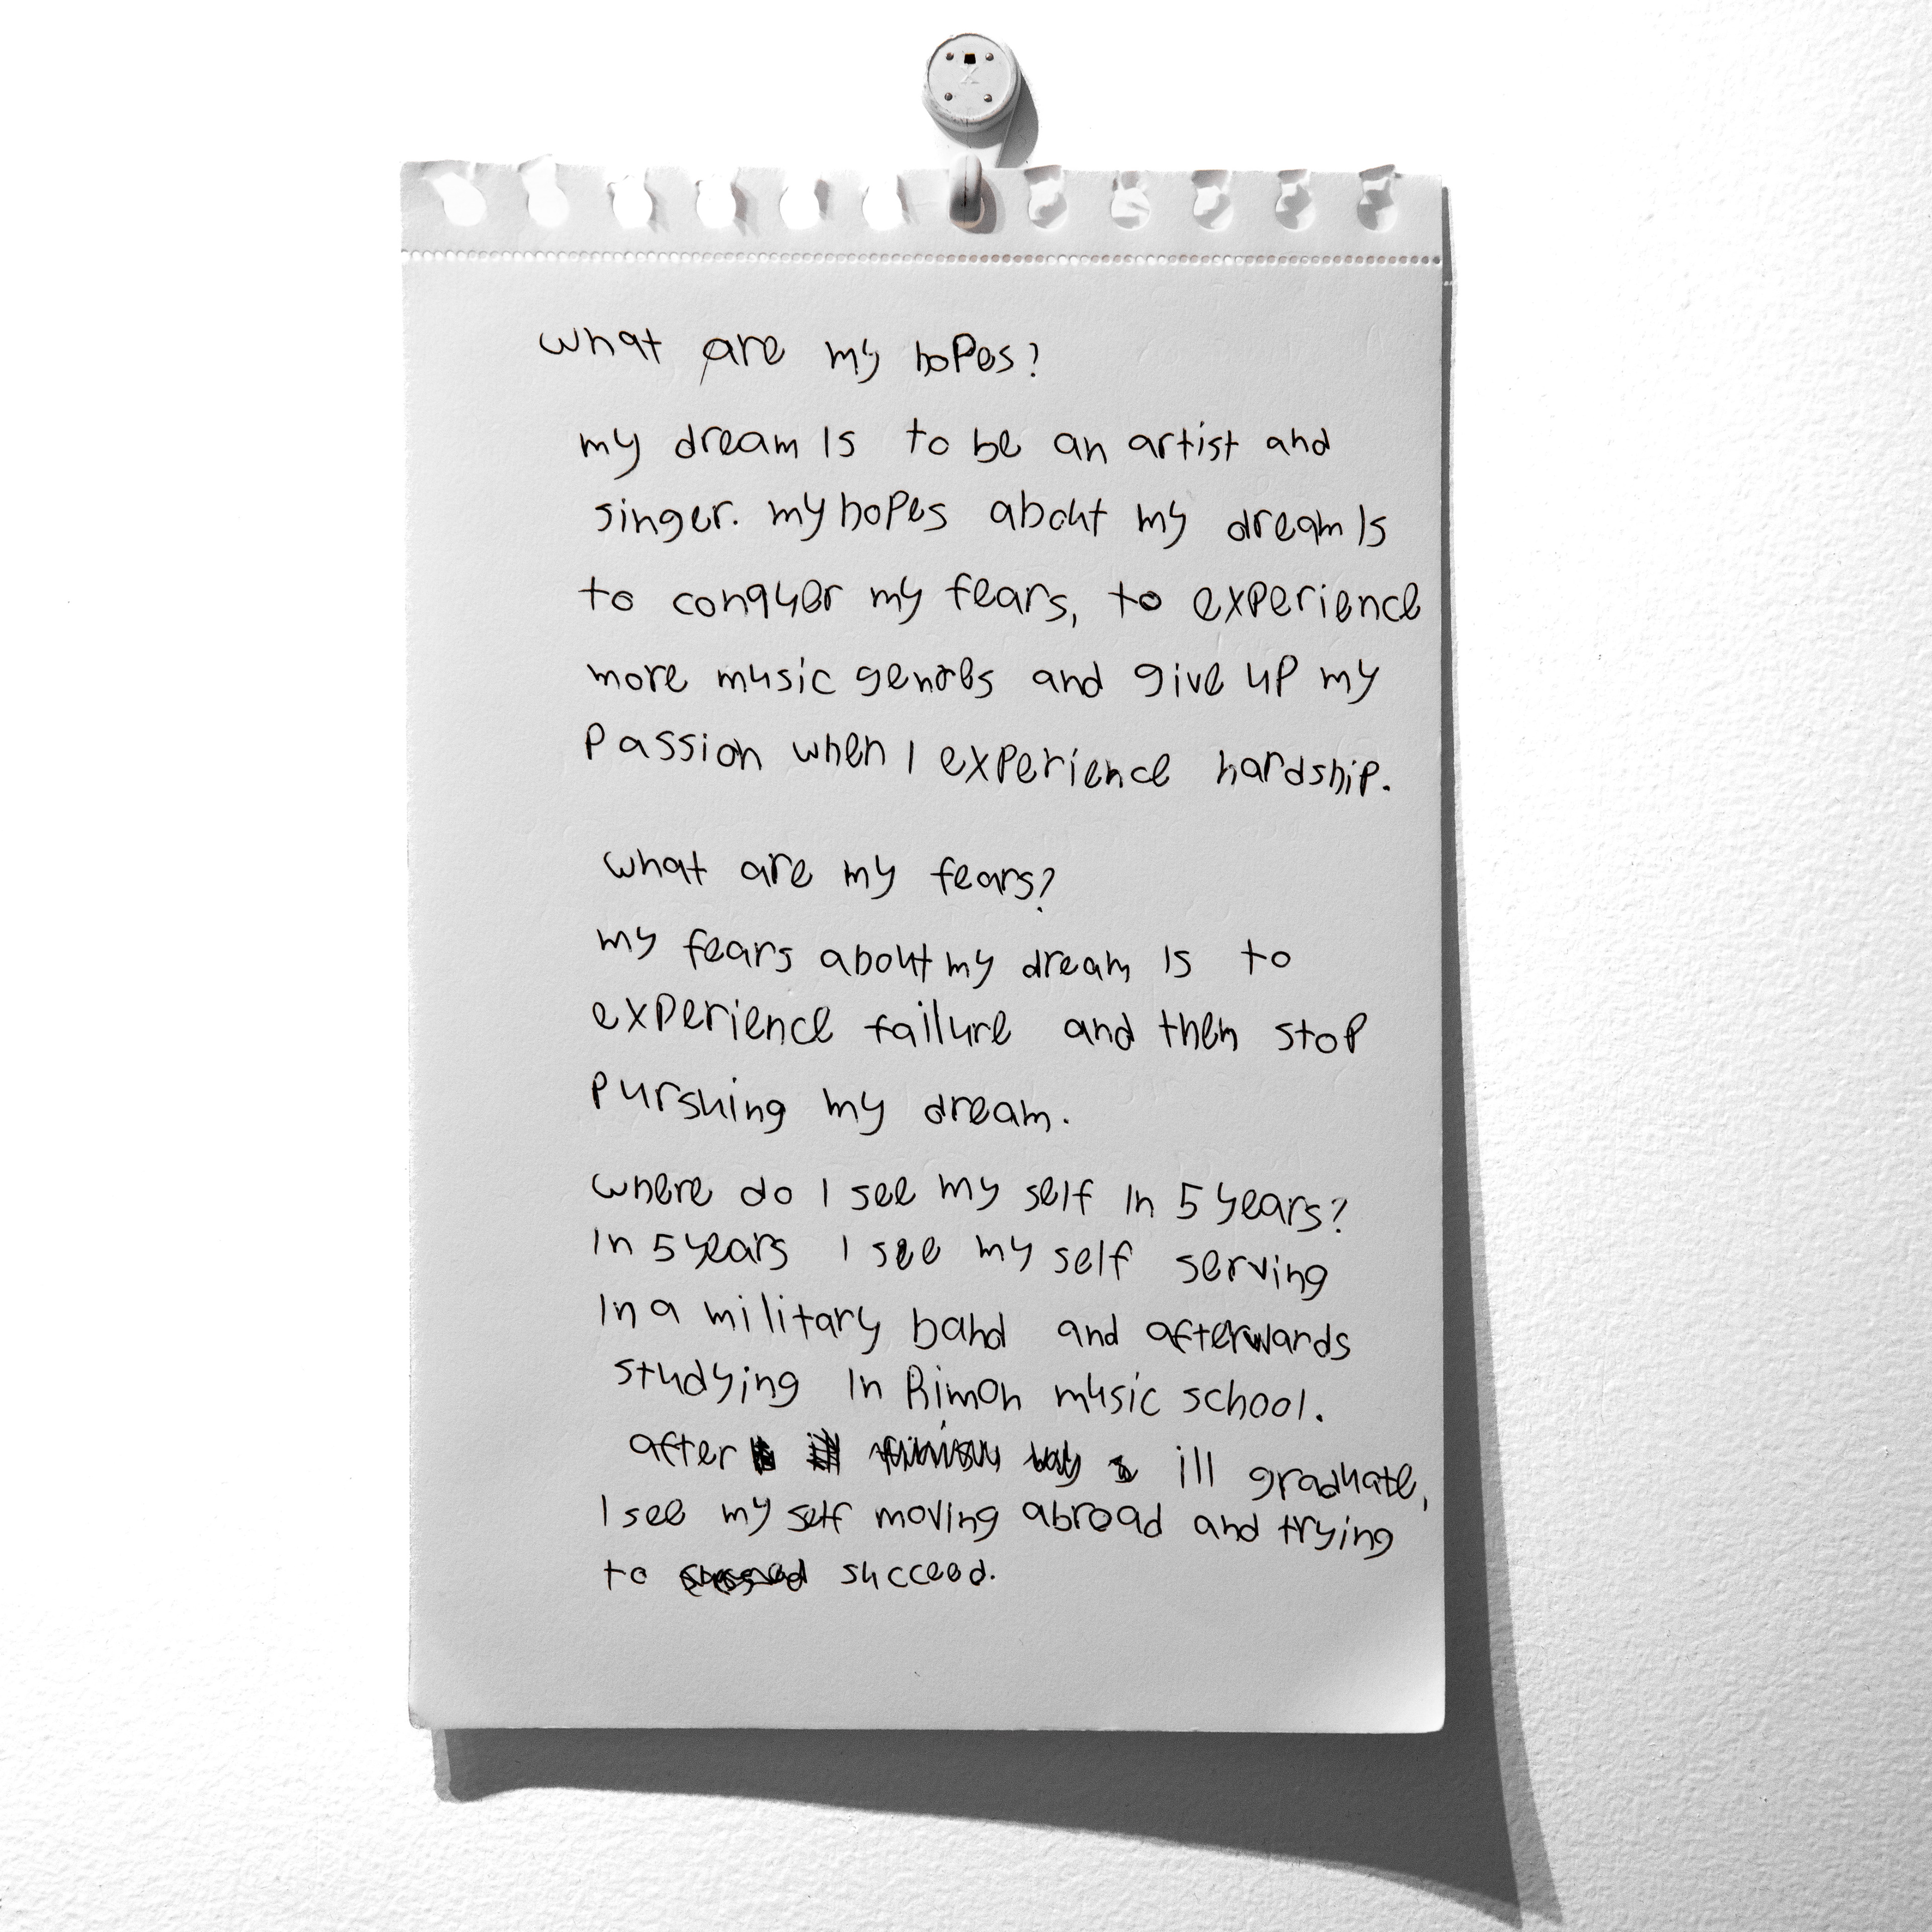 what are my hopes?
my dream is to be an artist and
singer. my hopes about my dream is
to conquer my fears, to experience
more music genres and give up my
passion when I experience hardship.
what are my fears?
my fears about my dream is to
experience failure and then stop
purshing my dream.
where do I see my self in 5 years?
In 5 years I see my self serving
In a military band and afterwards
studying In Rimon music school.
after ill graduate,
I see my self moving abroad and trying
to succeed.